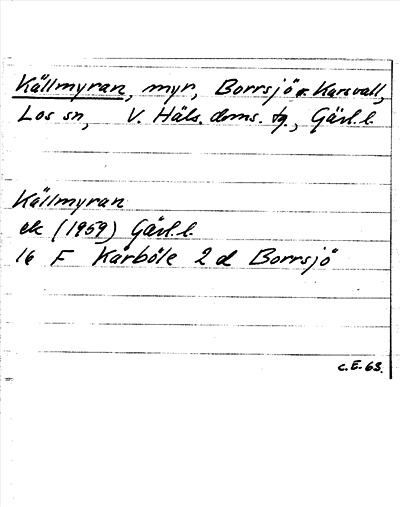 Källmyran, myr, Borrsjö o. Karsvall,
Los sn, V. Häls. doms. tg., Gävl. l.
Källmyran
ek (1959) Gävl. l.
16 F Kårböle 2 d Borrsjö
C.E. 63.